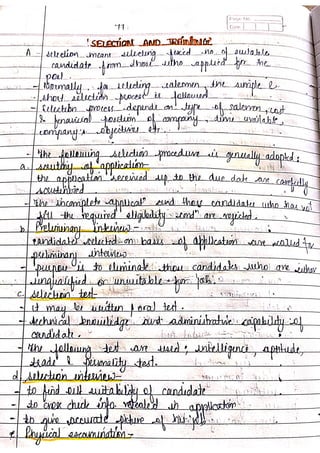 - 11 -
"SELECTION AND TRAINING"
A - selection means selecting fixed no. of suitable
candidate from those who applied for the
post.
- Normally, for selecting salesmen, the simple &
short selection process is followed.
- Selection process depends on type of salesmen, cost
& financial position of company, time available,
company's objectives etc.
- The following selection procedure is generally adopted:
a. scrutiny of application-
- the application received up to the due date are carefully
scrutinized
- the incomplete applicat" and those candidates who has not
fill the required eligibility cond" are rejected.
b. Preliminary interview-
- candidates selected on basis of application are called for
preliminary interview
- purpose is to eliminate those candidates who are either
unqualified or unsuitable for job.
c. selection test-
- it may be written / oral test.
- technical knowledge and administrative capability of
candidate.
- the following test are used: intelligence, aptitude,
trade & personality test.
d. selection interview-
- to find out suitability of candidate
- to cross check info revealed in application
- to give accurate picture of job
e. Physical examination-